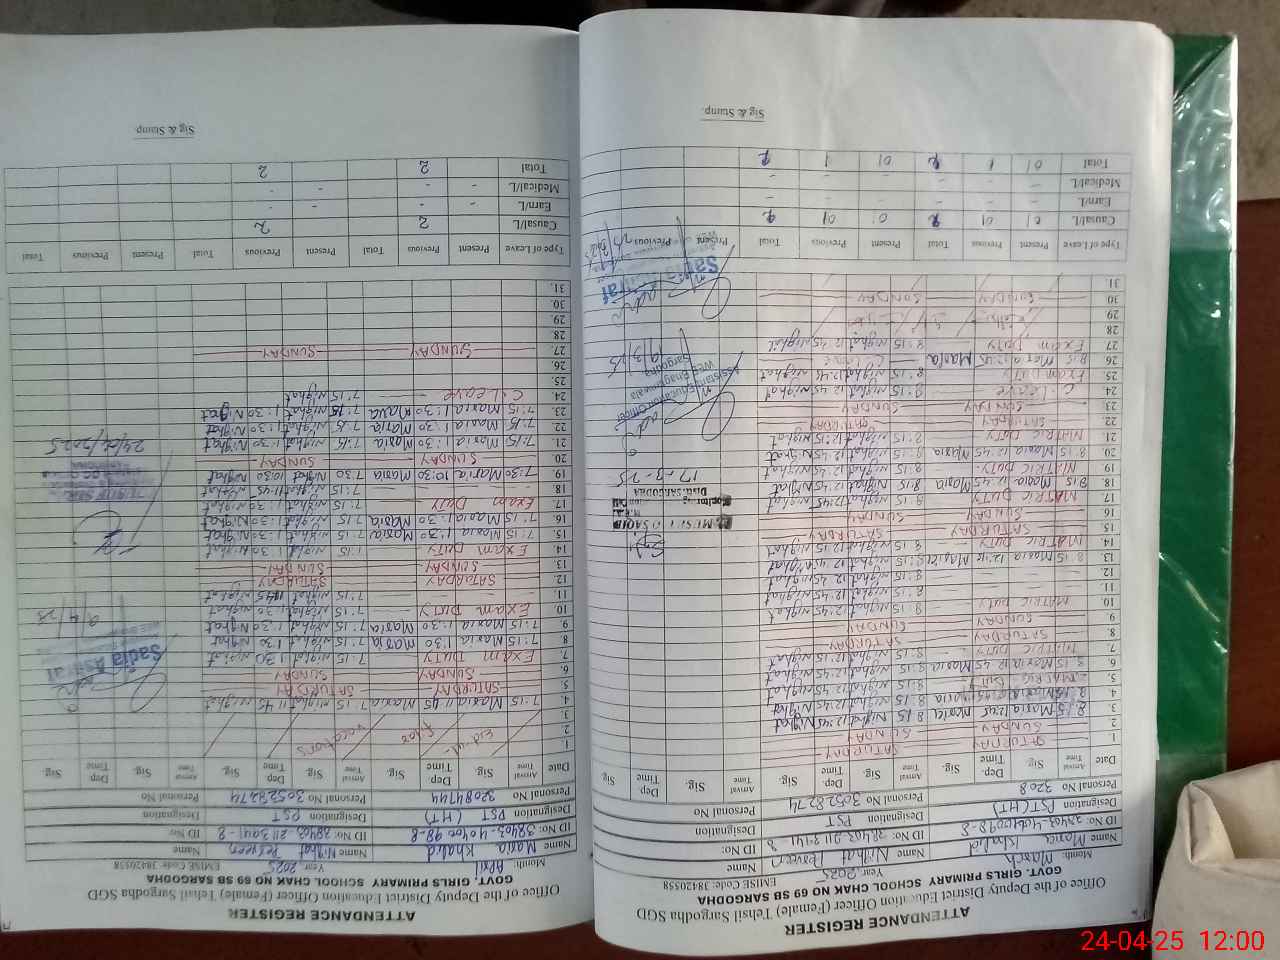 ATTENDANCE REGISTER
Office of the Deputy District Education Officer (Female) Tehsil Sargodha SGD
GOVT. GIRLS PRIMARY SCHOOL CHAK NO 69 SB SARGODHA
Month: March Year 2025 EMISE Code: 38420558
Name Maria Khalid Name Nighat Perveen Name
ID No: ID No: ID No:
Designation PST (HT) Designation PST Designation
Personal No 3208 Personal No 30528274 Personal No
Date Arrival Time Sig Dep. Time Sig Arrival Time Sig Dep. Time Sig Arrival Time Sig Dep. Time Sig
1. SATURDAY SATURDAY
2. SUNDAY SUNDAY
3. 8 15 Maria 12:45 Maria 8 15 Nighat 12:45 Nighat
4.
5. MATRIC DUTY 8 15 Nighat 12 45 Nighat
6. 8 15 Maria 12 45 Maria 8 15 Nighat 12 45 Nighat
7. MATRIC DUTY 8 15 Nighat 12 45 Nighat
8. SATURDAY SATURDAY
9. SUNDAY SUNDAY
10. MATRIC DUTY 8 15 Nighat 12:45 Nighat
11. 8 15 Nighat 12 45 Nighat
12. 8:15 Nighat 12 45 Nighat
13. 8 15 Maria 12:15 Maria 8 15 Nighat 12 15 Nighat
14. MATRIC DUTY 8 15 Nighat 12:15 Nighat
15. SATURDAY SATURDAY
16. SUNDAY SUNDAY
17. MATRIC DUTY 8 15 Nighat 12 45 Nighat
18. 8 15 Maria 12 45 Maria 8 15 Nighat 12 45 Nighat
19. MATRIC DUTY 8 15 Nighat 12 45 Nighat
20. 8 15 Maria 12 45 Maria 8 15 Nighat 12 45 Nighat
21. MATRIC DUTY 8:15 Nighat 12:15 Nighat
22. SATURDAY SATURDAY
23. SUNDAY SUNDAY
24. C. Leave 8:15 Nighat 12 45 Nighat
25. Exam Duty 8 15 Nighat 12:45 Nighat
26. 8 15 Maria 12:45 Maria C. Leave
27. Exam Duty 8:15 Nighat 12 45 Nighat
28.
29.
30. SUNDAY SUNDAY
31.
Assistant Education Officer
WEE Bhagtanwala
Sargodha
19/3/25
17-3-25
Dist. SARGODHA
Sadia Ashraf
Type of Leave Present Previous Total Present Previous Total Present Previous
Causal/L 01 01 2 01 01 2
Earn/L - - - -
Medical/L - - - -
Total 01 1 2 01 1 2
Sig & Stamp.
ATTENDANCE REGISTER
Office of the Deputy District Education Officer (Female) Tehsil Sargodha SGD
GOVT. GIRLS PRIMARY SCHOOL CHAK NO 69 SB SARGODHA
Month: April Year 2025 EMISE Code: 38420558
Name Maria Khalid Name Nighat Perveen Name
ID No: 38403-4040098-8 ID No: 38403-2113941-8 ID No:
Designation PST (HT) Designation PST Designation
Personal No 32084744 Personal No 30528274 Personal No
Date Arrival Time Sig Dep. Time Sig Arrival Time Sig Dep. Time Sig Arrival Time Sig Dep Time Sig
1.
2. Eid-ul- Fitar vacations
3.
4. 7:15 Maria 11 45 Maria 7 15 Nighat 11 45 Nighat
5. SATURDAY SATURDAY
6. SUNDAY SUNDAY
7. Exam DUTY 7 15 Nighat 1:30 Nighat
8. 7:15 Maria 1:30 Maria 7 15 Nighat 1 30 Nighat
9. 7:15 Maria 1:30 Maria 7 15 Nighat 1:30 Nighat
10. Exam DUTY 7:15 Nighat 1:30 Nighat
11. 7:15 Nighat 11 45 Nighat
12. SATURDAY SATURDAY
13. SUNDAY SUNDAY
14. Exam DUTY 7:15 Nighat 1:30 Nighat
15. 7:15 Maria 1:30 Maria 7 15 Nighat 1:30 Nighat
16. 7:15 Maria 1:30 Maria 7 15 Nighat 1:30 Nighat
17. Exam DUTY 7:15 Nighat 1:30 Nighat
18. 7:15 Nighat 11:45 Nighat
19. 7:30 Maria 10:30 Maria 7:30 Nighat 10:30 Nighat
20. SUNDAY SUNDAY
21. 7:15 Maria 1:30 Maria 7:15 Nighat 1:30 Nighat
22. 7:15 Maria 1:30 Maria 7:15 Nighat 1:30 Nighat
23. 7:15 Maria 1:30 Maria 7:15 Nighat 1:30 Nighat
24. C. Leave 7:15 Nighat
25.
26.
27. SUNDAY SUNDAY SUNDAY
28.
29.
30.
31.
Sadia Ashraf
9/4/25
Type of Leave Present Previous Total Present Previous Total Present Previous Total
Causal/L 2 2
Earn/L - - - -
Medical/L - - - -
Total 2 2
Sig & Stamp
24-04-25 12:00